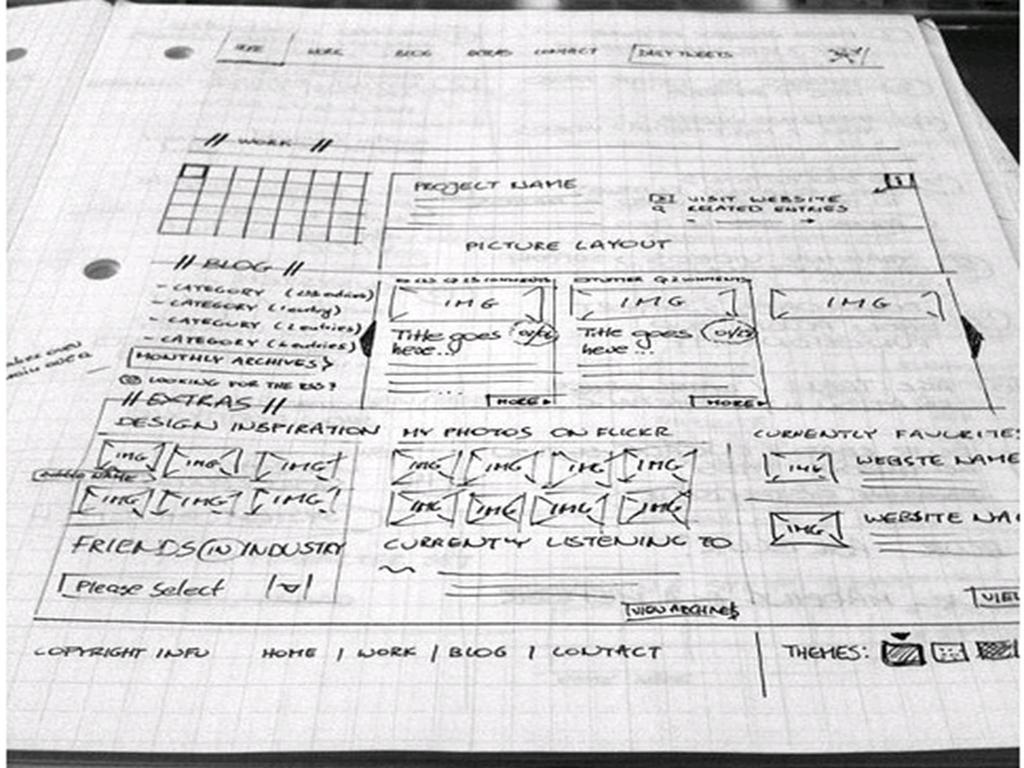 WORK BLOG EXTRAS CONTACT DAILY TWEETS
// WORK //
PROJECT NAME
VISIT WEBSITE
RELATED ENTRIES
PICTURE LAYOUT
// BLOG //
- CATEGORY
- CATEGORY (1 entry)
- CATEGORY (2 entries)
- CATEGORY (4 entries)
MONTHLY ARCHIVES
LOOKING FOR THE RSS?
IMG
Title goes
here...
MORE
IMG
Title goes
here...
MORE
IMG
// EXTRAS //
DESIGN INSPIRATION
IMG IMG IMG
IMG IMG IMG
FRIENDS IN INDUSTRY
Please Select
MY PHOTOS ON FLICKR
IMG IMG IMG IMG
IMG IMG IMG IMG
CURRENTLY LISTENING TO
VIEW ARCHIVES
CURRENTLY FAVOURITE
IMG WEBSTE NAME
IMG WEBSITE NA
VIE
COPYRIGHT INFO HOME | WORK | BLOG | CONTACT THEMES: